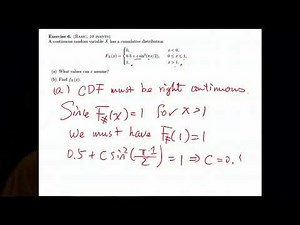 Exercise 6: (Basic, 10 points)
A continuous random variable X has a cumulative distribution
F_X(x) = { 0, x < 0,
0.5 + c sin²(πx/2), 0 ≤ x ≤ 1,
1, x > 1.
(a) What values can c assume?
(b) Find f_X(x).
(a) CDF must be right continuous
Since F_X(x) = 1 for x > 1
We must have F_X(1) = 1
0.5 + C sin²(π·1/2) = 1 ⇒ C = 0.